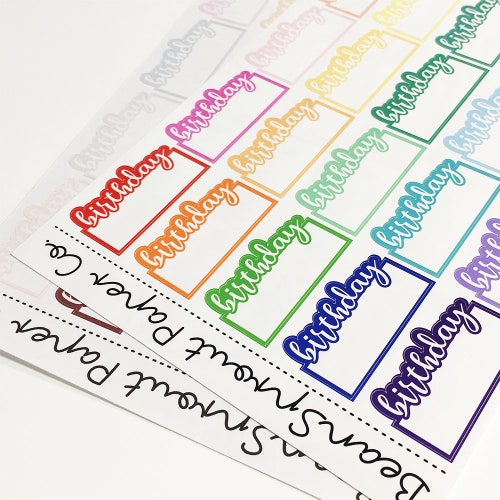 birthday
birthday
birthday
birthday
birthday
birthday
birthday
birthday
birthday
birthday
birthday
birthday
birthday
birthday
birthday
birthday
BeanSprout Paper Co.
BeanSprout Paper